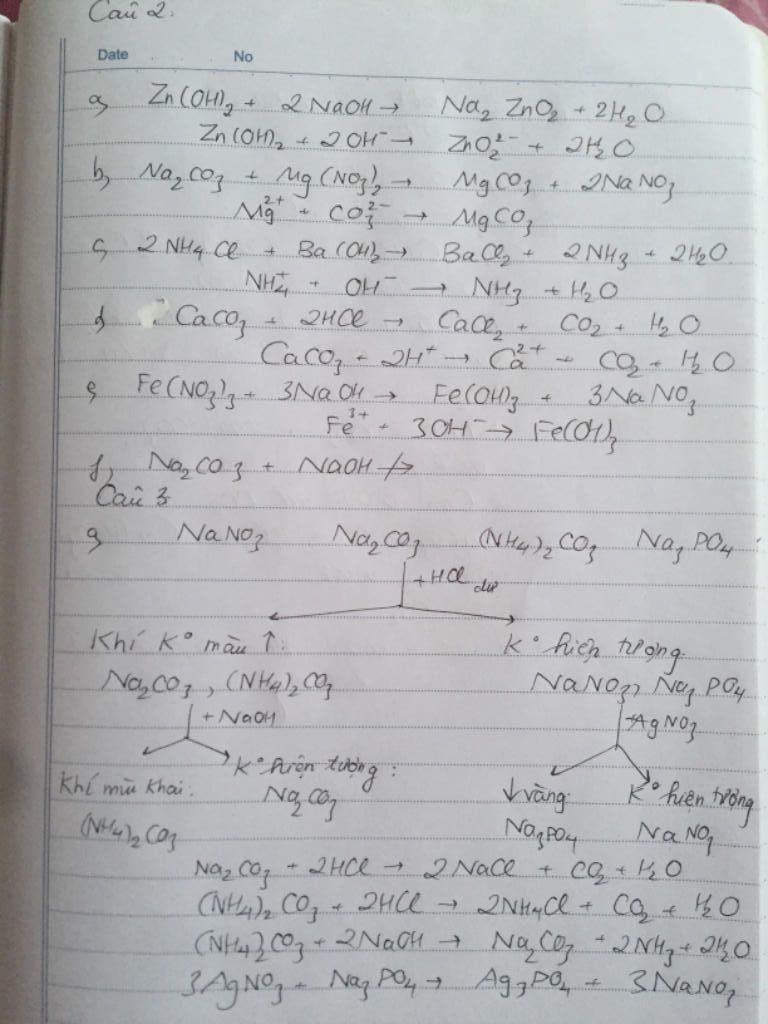 Câu 2.
Date No
a, Zn(OH)₂ + 2NaOH → Na₂ZnO₂ + 2H₂O
Zn(OH)₂ + 2OH⁻ → ZnO₂²⁻ + 2H₂O
b, Na₂CO₃ + Mg(NO₃)₂ → MgCO₃ + 2NaNO₃
Mg²⁺ + CO₃²⁻ → MgCO₃
c, 2NH₄Cl + Ba(OH)₂ → BaCl₂ + 2NH₃ + 2H₂O
NH₄⁺ + OH⁻ → NH₃ + H₂O
d, CaCO₃ + 2HCl → CaCl₂ + CO₂ + H₂O
CaCO₃ + 2H⁺ → Ca²⁺ + CO₂ + H₂O
e, Fe(NO₃)₃ + 3NaOH → Fe(OH)₃ + 3NaNO₃
Fe³⁺ + 3OH⁻ → Fe(OH)₃
f, Na₂CO₃ + NaOH ↛
Câu 3
a, NaNO₃ Na₂CO₃ (NH₄)₂CO₃ Na₃PO₄
+HCl dư
Khí K° màu ↑: K° hiện tượng
Na₂CO₃, (NH₄)₂CO₃ NaNO₃, Na₃PO₄
+NaOH +AgNO₃
Khí mùi khai: K° hiện tượng: ↓ vàng K° hiện tượng
(NH₄)₂CO₃ Na₂CO₃ Na₃PO₄ NaNO₃
Na₂CO₃ + 2HCl → 2NaCl + CO₂ + H₂O
(NH₄)₂CO₃ + 2HCl → 2NH₄Cl + CO₂ + H₂O
(NH₄)₂CO₃ + 2NaOH → Na₂CO₃ + 2NH₃ + 2H₂O
3AgNO₃ + Na₃PO₄ → Ag₃PO₄ + 3NaNO₃